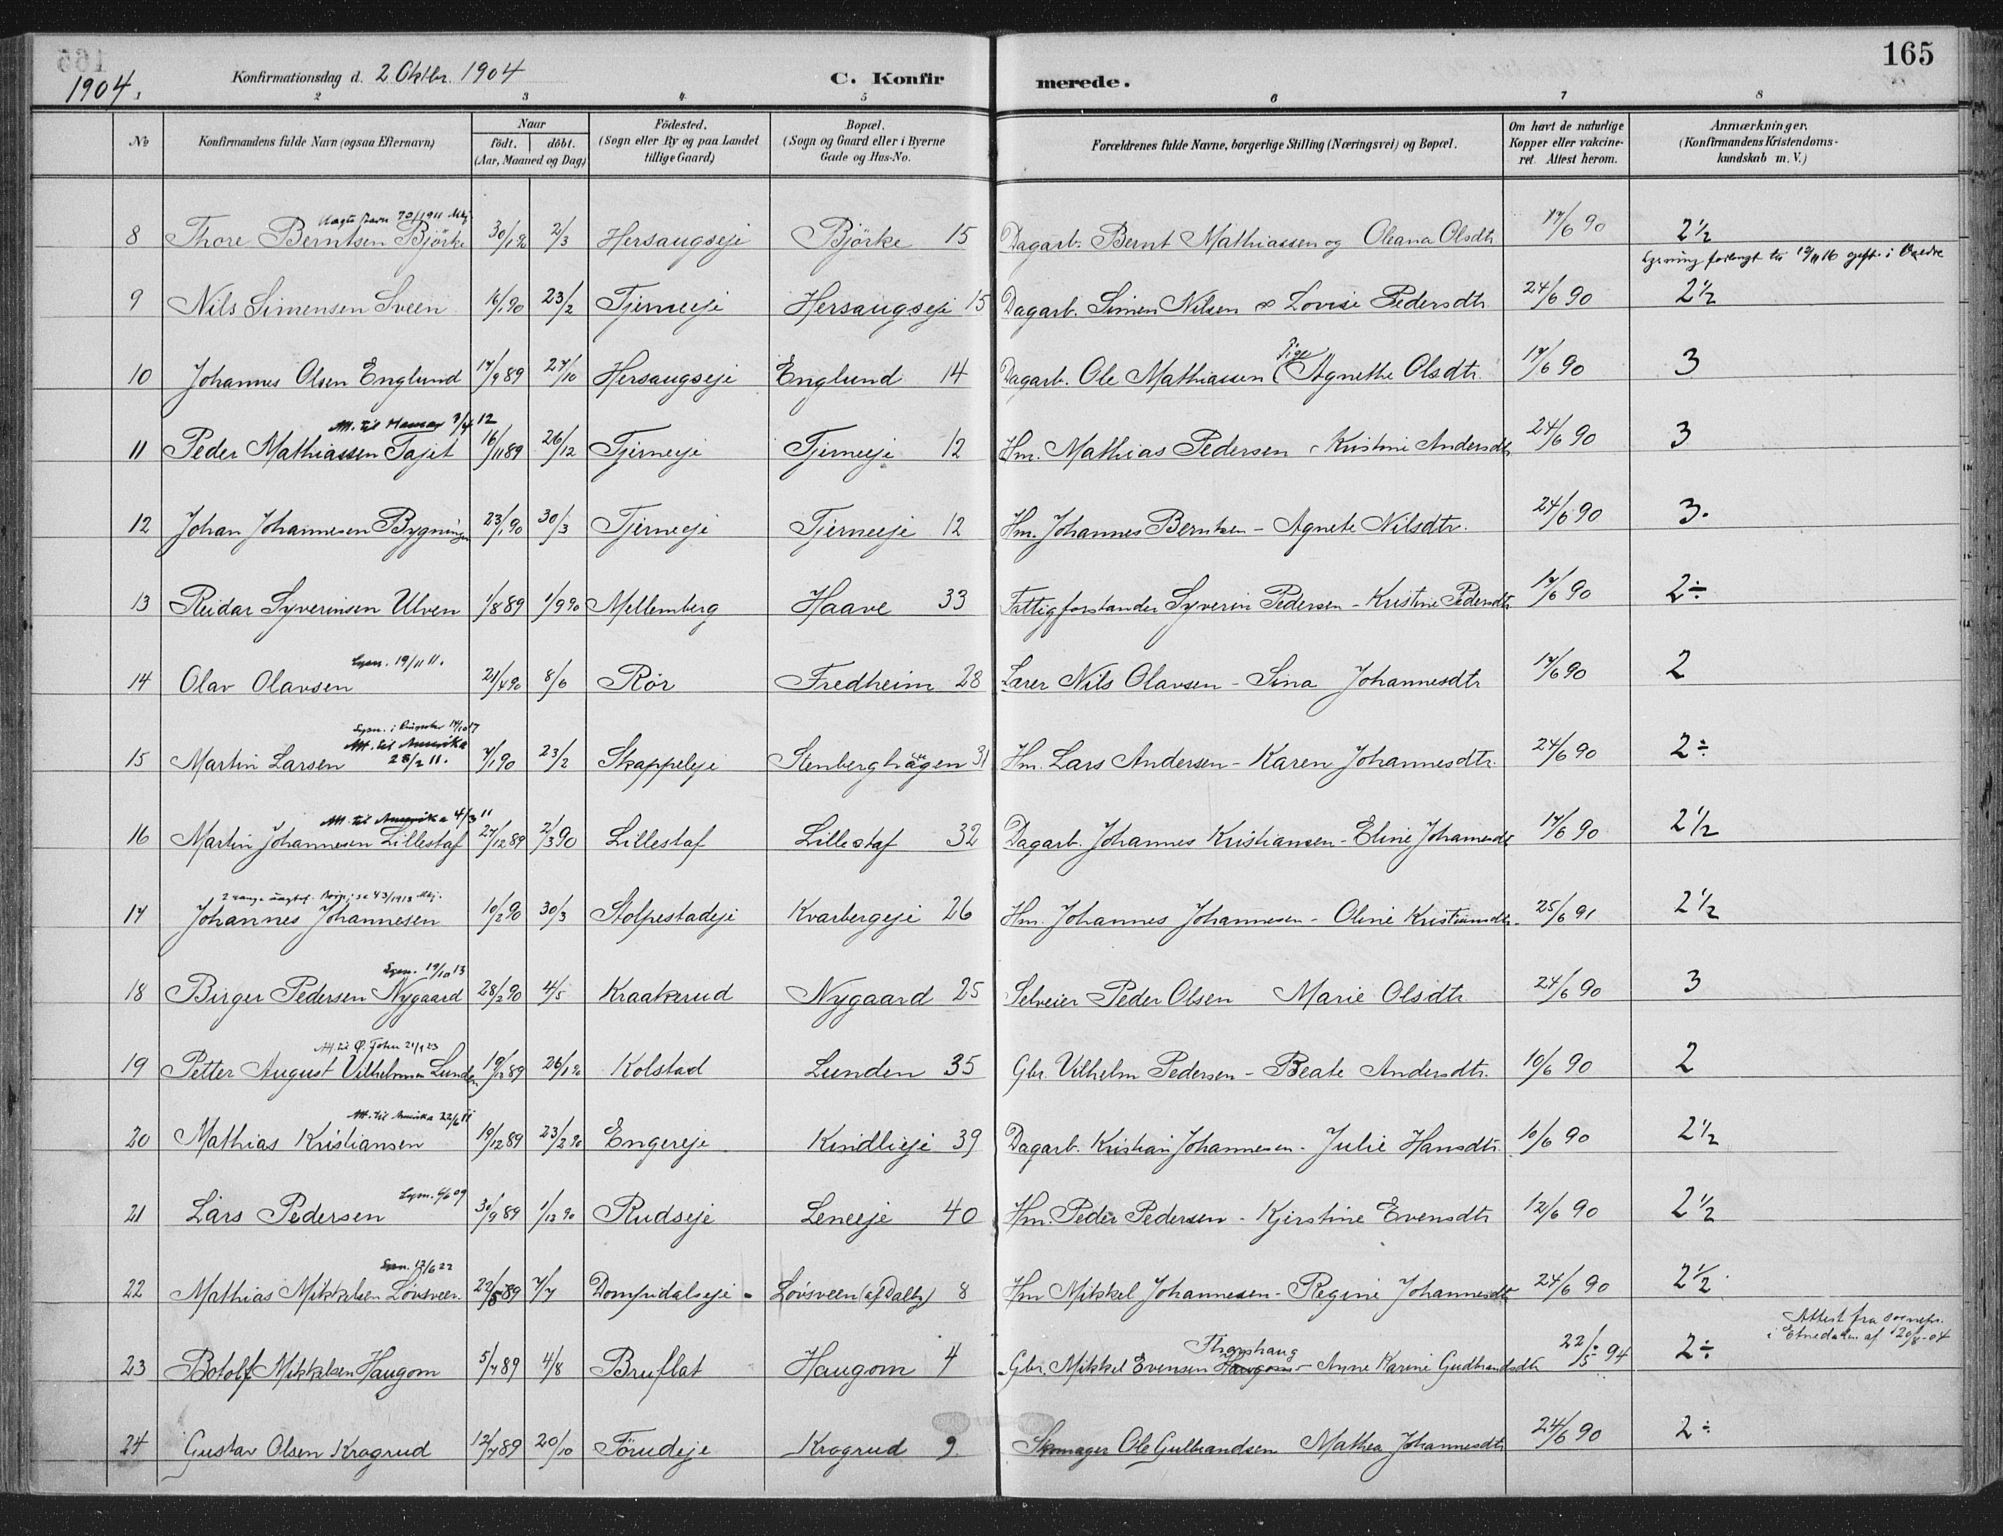 165
1904. Konfirmationsdag d. 2 Oktbr. 1904 C. Konfirmerede.
1 2 3 4. 5 6 7 8
№ Konfirmandens fulde Navn (ogsaa Efternavn) Naar födt. döbt. (Aar, Maaned og Dag) Födested. (Sogn eller By og paa Landet tillige Gaard) Bopæl. (Sogn og Gaard eller i Byerne Gade og Hus-No. Forældrenes fulde Navne, borgerlige Stilling (Næringsvei) og Bopæl. Om havt de naturlige Kopper eller vakcineret. Attest herom. Anmærkninger. (Konfirmandens Kristendomskundskab m. V.)
8 Thore Berntsen Björke 30/1 90 2/3 Hersaugseje Björke 15 Dagarb. Bernt Mathiassen og Oleana Olsdtr 17/6 90 2½
9 Nils Simensen Sveen 16/1 90 23/2 Tjerneeje Hersaugseje 15 Dagarb. Simen Nilsen Lovise Pedersdtr 24/6 90 2½
10 Johannes Olsen Englund 17/9 89 27/10 Hersaugseje Englund 14 Dagarb. Ole Mathiassen Pige Agnethe Olsdtr. 17/6 90 3
Att. til Hamar 3/4 12
11 Peder Mathiassen Tajet 16/11 89 26/12 Tjerneeje Tjerneeje 12 Hm. Mathias Pedersen Kristine Andersdtr 24/6 90 3
12 Johan Johannesen Bygningen 23/1 90 30/3 Tjerneeje Tjerneeje 12 Hm. Johannes Berntsen - Agnete Nilsdtr. 24/6 90 3.
13 Reidar Syverinsen Ulven 1/8 89 1/9 90 Mellemberg Haave 33 Fattigforstander Syverin Pedersen - Kristine Pedersdtr 17/6 90 2÷
Lysn. 19/11 11.
14 Olav Olavsen 21/4 90 8/6 Rör Fredheim 28 Lærer Nils Olavsen - Sina Johannesdtr 17/6 90 2
Att. til Amerika
28/2 11.
15 Martin Larsen 7/1 90 23/2 Skappeleje Stenberghagen 31 Hm. Lars Andersen - Karen Johannesdtr. 24/6 90 2÷
Att. til Amerika 4/3 11
16 Martin Johannesen Lillestaf 27/12 89 2/3 90 Lillestaf Lillestaf 32 Dagarb. Johannes Kristiansen - Eline Johannesdtr 17/6 90 2½
17 Johannes Johannesen 10/2 90 30/3 Stolpestadeje Kvarbergeje 26 Hm. Johannes Johannesen - Oline Kristiansdtr. 25/6 91 2½
Lysn. 19/10 13
18 Birger Pedersen Nygaard 28/2 90 4/5 Kraakerud Nygaard 25 Selveier Peder Olsen Marie Olsdtr 24/6 90 3
19 Petter August Vilhelmsen Lunden 19/12 89 26/1 90 Kolstad Lunden 35 Gbr. Vilhelm Pedersen - Beate Andersdtr. 10/6 90 2
Att. til Amerika 22/6 11
20 Mathias Kristiansen 19/12 89 23/2 90 Engereje Kindlieje 39 Dagarb. Kristian Johannesen - Julie Hansdtr. 10/6 90 2½
Lysn. 6/6 09
21 Lars Pedersen 30/9 89 1/12 90 Rudseje Leneeje 40 Hm. Peder Pedersen - Kjerstine Evensdtr 12/6 90 2½
Lysn. 12/6 22
22 Mathias Mikkelsen Lövsveen. 22/5 89 7/7 Dompidalseje Lövsveen (af Dalby) 8 Hm Mikkel Johannesen - Regine Johannesdtr 24/6 90 2½
Attest fra
i Etnedalen af 20/8-04
23 Botolf Mikkelsen Haugom 5/7 89 4/8 Bruflat Haugom 4 Gbr. Mikkel Evensen Thomshaug - Anne Karine Gudbrandsdtr 22/5 94 2÷
24 Gustav Olsen Krogrud 12/7 89 20/10 Förudeje Krogrud 9 Skomager Ole Gulbrandsen Mathea Johannesdtr 24/6 90 2÷